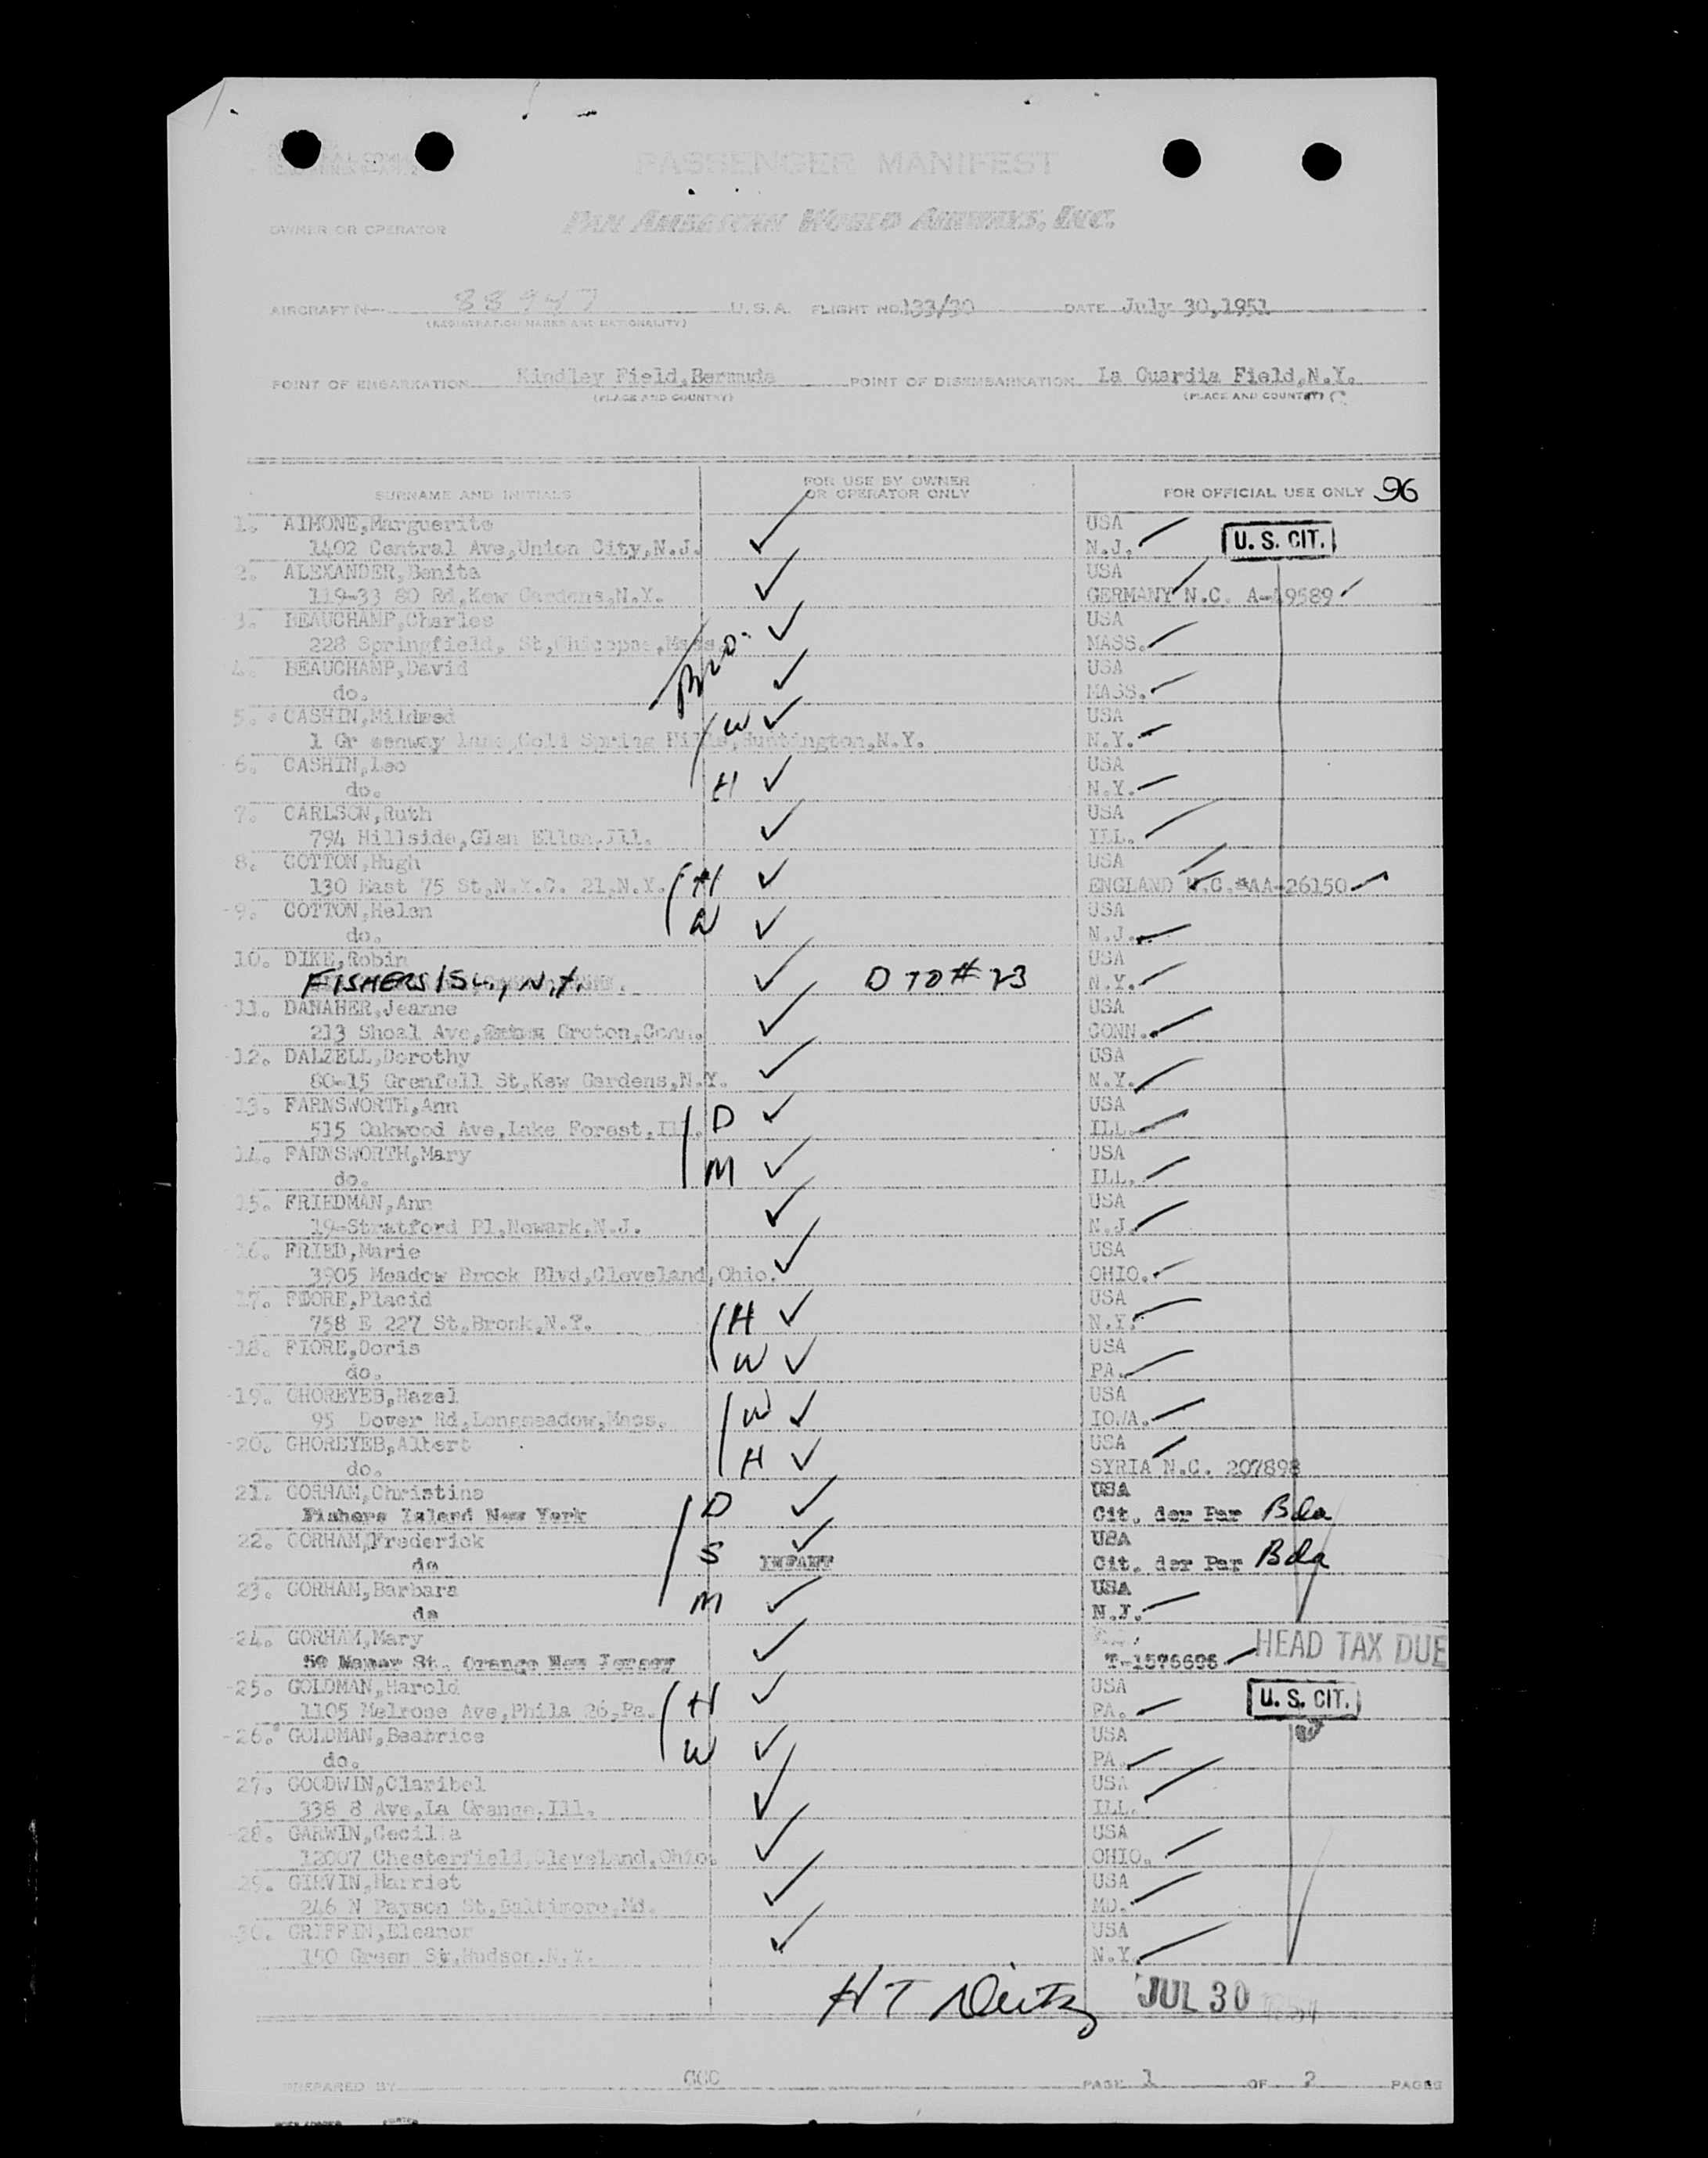 PASSENGER MANIFEST
OWNER OR OPERATOR PAN AMERICAN WORLD AIRWAYS, INC.
AIRCRAFT N- 88947 U.S.A. FLIGHT NO. 133/30 DATE July 30,1951
(REGISTRATION MARKS AND NATIONALITY)
POINT OF EMBARKATION Kindley Field,Bermuda POINT OF DISEMBARKATION La Guardia Field,N.Y.
(PLACE AND COUNTRY) (PLACE AND COUNTRY)
SURNAME AND INITIALS FOR USE BY OWNER OR OPERATOR ONLY FOR OFFICIAL USE ONLY 96
1. AIMONE,Marguerite USA
1402 Central Ave,Union City,N.J. N.J. U.S. CIT.
2. ALEXANDER,Benita USA
119-33 80 Rd,Kew Gardens,N.Y. GERMANY N.C. A-19589
3. BEAUCHAMP,Charles USA
228 Springfield, St,Chicopee,Mass. Bro. MASS.
4. BEAUCHAMP,David USA
do. MASS.
5. CASHIN,Mildred W USA
1 Gr eenway lane,Coll Spring Hills,Huntington,N.Y. N.Y.
6. CASHIN,Leo USA
do. H N.Y.
7. CARLSON,Ruth USA
794 Hillside,Glen Ellen,Ill. ILL.
8. COTTON,Hugh USA
130 East 75 St,N.Y.C. 21,N.Y. H ENGLAND N.C.#AA-26150
9. COTTON,Helen W USA
do. N.J.
10. DIKE,Robin USA
FISHERS ISL., N.Y. D TO # 23 N.Y.
11. DANAHER,Jeanne USA
213 Shoal Ave, Groton,Conn. CONN.
12. DALZELL,Dorothy USA
80-15 Grenfell St,Kew Gardens,N.Y. N.Y.
13. FARNSWORTH,Ann USA
515 Oakwood Ave,Lake Forest,Ill. D ILL.
14. FARNSWORTH,Mary USA
do. M ILL.
15. FRIEDMAN,Ann USA
19-Stratford Pl,Newark,N.J. N.J.
16. FRIED,Marie USA
3905 Meadow Brook Blvd,Cleveland,Ohio. OHIO.
17. FIORE,Placid USA
758 E 227 St,Bronk,N.Y. H N.Y.
18. FIORE,Doris USA
do. W PA.
19. GHOREYEB,Hazel USA
95 Dover Rd,Longmeadow,Mass. W IOWA.
20. GHOREYEB,Albert USA
do. H SYRIA N.C. 207898
21. GORHAM,Christina D USA
Fishers Island New York Cit. der Par Bda
22. GORHAM,Frederick S USA
do INFANT Cit. der Par Bda
23. GORHAM,Barbara M USA
do N.Y.
24. GORHAM,Mary
T-1576696 HEAD TAX DUE
25. GOLDMAN,Harold USA
1105 Melrose Ave,Phila 26,Pa. H PA. U.S. CIT.
26. GOLDMAN,Beatrice USA
do. W PA.
27. GOODWIN,Claribel USA
338 8 Ave,La Grange,Ill. ILL.
28. GARWIN,Cecilia USA
12007 Chesterfield,Cleveland,Ohio. OHIO.
29. GIRVIN,Harriet USA
246 N Payson St,Baltimore,Md. MD.
30. GRIFFIN,Eleanor USA
150 Green St,Hudson,N.Y. N.Y.
JUL 30 1951
PREPARED BY PAGE 1 OF 2 PAGES